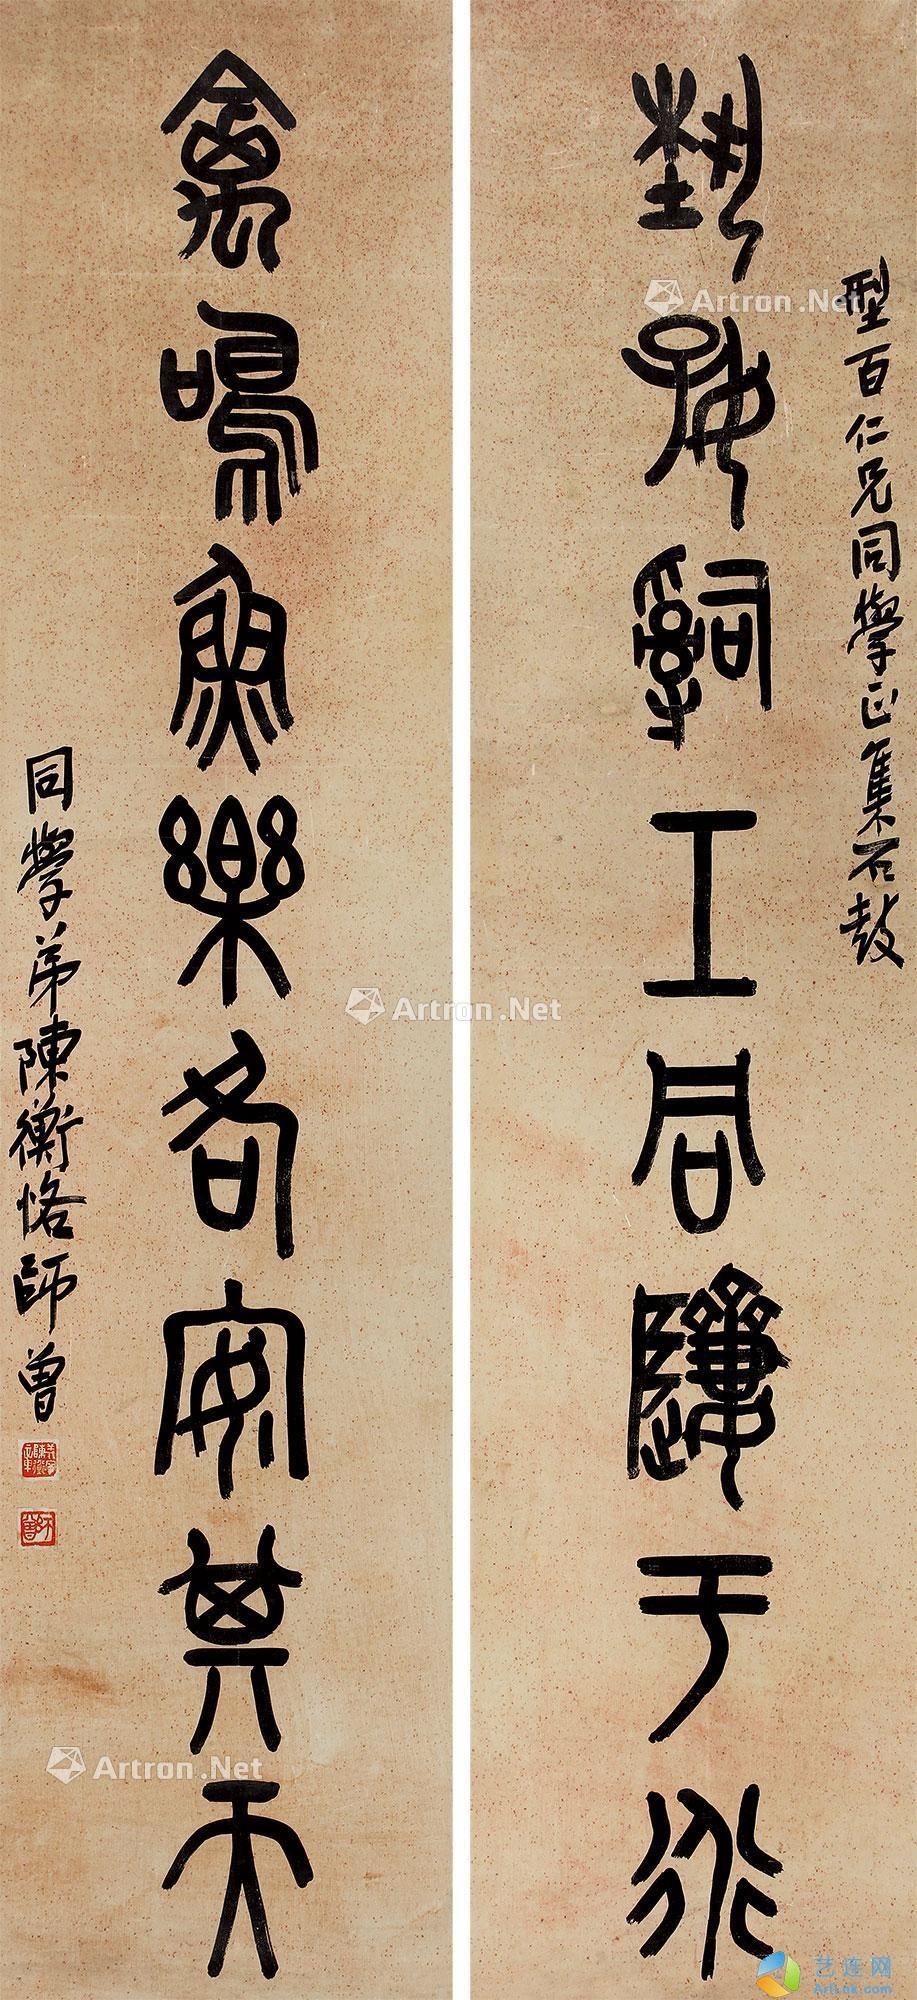 型百仁兄同學正集石鼓
埶好辭工同于永
禽鳴魚樂各安其天
同學弟陳衡恪師曾
師曾
Artron.Net
Artron.Net
Artron.Net
艺连网
ArtLok.com